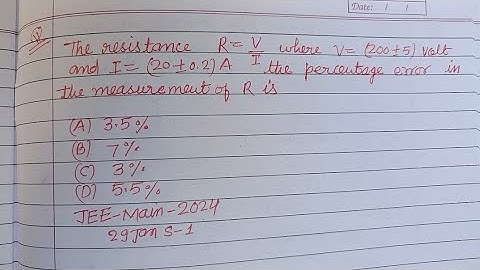 Date: / /
Q. The resistance R = V/I where V = (200±5) Volt
and I = (20±0.2) A the percentage error in
the measurement of R is
(A) 3.5%
(B) 7%
(C) 3%
(D) 5.5%
JEE-Main-2024
29 Jan S-1